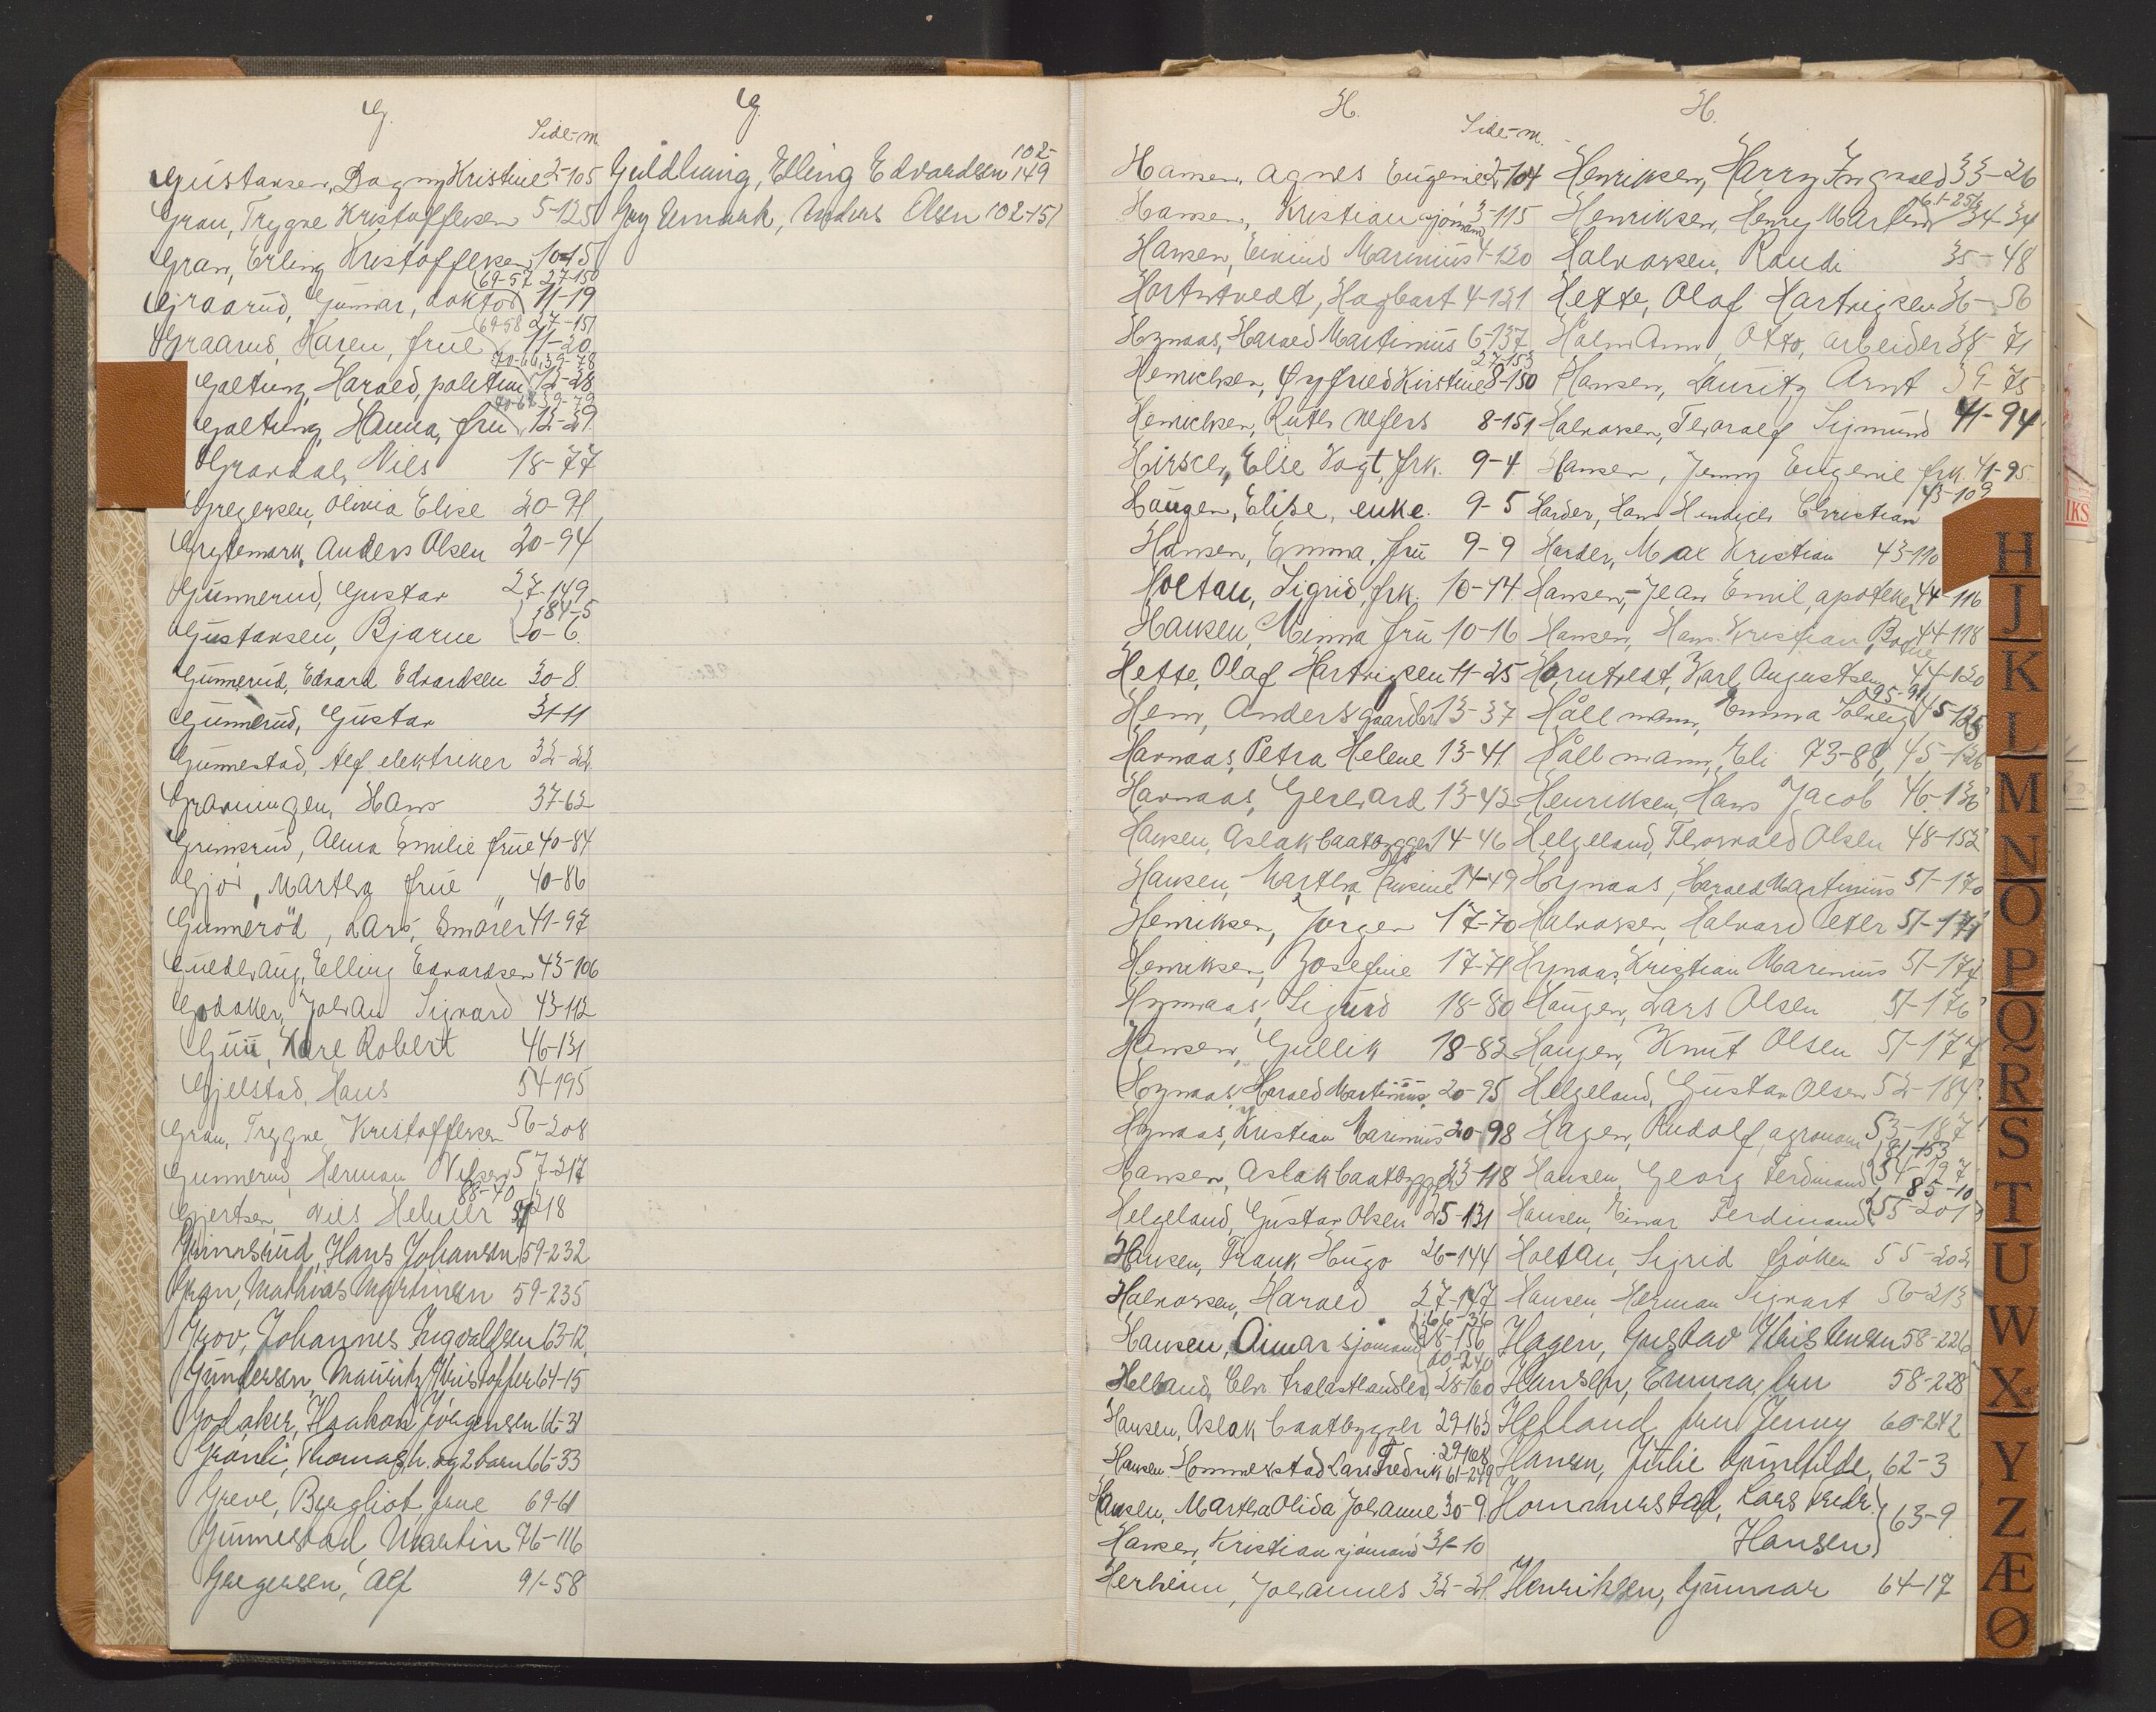 G.
Side-nr.
Gustavsen, Dagny Kristine 2-105
Gran, Trygve Kristoffersen 5-125
Gran, Erling Kristoffersen 10-15
69-57 27-150
Graarud, Gunnar, doktor 11-19
69-58 27-151
Graarud, Karen, frue 11-20
70-66, 39-78
Galtung, Harald, politim. 12-28
70-67 39-79
Galtung, Hanna, fru 12-29
Gravdal, Nils 18-77
Gregersen, Olivia Elise 20-91
Grytemark, Anders Olsen 20-94
Gunnerud, Gustav 27-149
84-5
Gustavsen, Bjarne 30-6
Gunnerud, Edvard Edvardsen 30-8
Gunnerud, Gustav 31-11
Gunnestad, Alf elektriker 32-22
Gravningen, Hans 37-62
Grimsrud, Alma Emilie frue 40-84
Gjøs, Martha frue 40-86
Gunneröd, Lars, Smörer 41-97
Guldhaug, Elling Edvardsen 43-106
Godaker, Johan Sigvard 43-112
Guii, Kare Robert 46-131
Gjelstad, Hans 54-195
Gran, Trygve Kristoffersen 56-208
Gunnerud, Herman Nilsen 57-217
88-40
Gjertsen, Nils Helmer 57-218
Grimsrud, Hans Johansen 59-232
Gran, Mathias Martinsen 59-235
Grov, Johannes Ingvaldsen 63-12
Gundersen Mauritz Kristoffer 64-15
Godaker, Haakon Jörgensen 66-31
Granli, Thomas, h. og 2 barn 66-33
Greve, Bergliot frue 69-61
Gunnestad Martin 76-116
Gregersen, Alf 91-58
G.
Guldhaug, Elling Edvardsen 102-149
Grytemark, Anders Olsen 102-151
H.
Side-nr.
Hansen, Agnes Eugenie 2-104
Hansen, Kristian sjömand 3-115
Hansen, Eivind Marinius 4-120
Hortntvedt, Hagbart 4-121
Hynaas, Harald Martinius 6-137
27-153
Henrichsen, Øyfried Kirstine 8-150
Henrichsen, Ruth Alfers 8-151
Hirsch, Else Vogt, frk. 9-4
Haugen, Elise, enke. 9-5
Hansen, Emma, fru 9-9
Holtan, Sigrid, frk. 10-14
Hansen, Minna fru 10-16
Hette, Olaf Hartvigsen 11-25
Hem, Anders gaardbr. 13-37
Havnaas, Petra Helene 13-41
Havnaas, Gerhard 13-42
Hansen, Aslak baatbygger 14-46
Hansen, Martha Hansine 14-49
Henriksen, Jørgen 17-70
Henriksen, Josefine 17-71
Hynaas, Sigurd 18-80
Hansen, Gullik 18-82
Hynaas, Harald Martinius 20-95
Hynaas, Kristian Marinius 20-98
Hansen, Aslak baatbygger 23-118
Helgeland, Gustav Olsen 25-131
Hansen, Frank Hugo 26-144
Halvorsen, Harald 27-147
66-36
Hansen, Einar sjömand 28-156
60-240
Helland, Chr. trælasthandler 28-160
Hansen, Aslak baatbygger 29-163
29-168
Hansen Hommerstad Lars Fredrik 61-249
Hansen, Martha Olida Johanne 30-9
Hansen, Kristian sjömand 31-10
Herheim, Johannes 32-21
H.
Henriksen, Harry Ingvald 33-26
61-256
Henriksen, Henry Martin 34-34
Halvorsen, Randi 35-48
Hette, Olaf Hartvigsen 36-56
Halm Arm, Otto, arbeider 38-71
Hansen, Lauritz Arnt 39-75
Halvorsen, Thoralf Sigmund 41-94
Hansen, Jenny Eugenie frk. 41-95
43-109
Harder, Hans Hendrich Christian
Harder, Max Kristian 43-110
Hansen, Jean Emil, apoteker 44-116
Hansen, Hans Kristian Bothne 44-118
Horntvedt, Karl Augustsen 44-120
95-91
Hållmann, Emma Solveig 45-125
Hållmann, Eli 73-88, 45-126
Henriksen, Hans Jacob 46-136
Helgeland, Thorvald Olsen 48-152
Hynaas, Harald Martinius 51-170
Halvorsen, Halvard Peter 51-171
Hynaas, Kristian Marinius 51-174
Haugen, Lars Olsen 51-176
Haugen, Knut Olsen 51-177
Helgeland, Gustav Olsen 52-184
Hagen, Rudolf, agronom 53-187
81-153
Hansen, Georg Ferdinand 54-197
85-10
Hansen, Einar Ferdinand 55-201
Holtan, Sigrid frøken 55-202
Hansen Herman Sigvart 56-213
Hagen, Gustav Kristensen 58-226
Hansen, Emma, fru 58-228
Helland, fru Jenny 60-242
Hansen, Julie Gunhilde, 62-3
Hommerstad, Lars Fredr. Hansen 63-9
Henriksen, Gunnar 64-17
H
J
K
L
M
N
O
P
Q
R
S
T
U
W
X
Y
Z
Æ
Ø
IKS